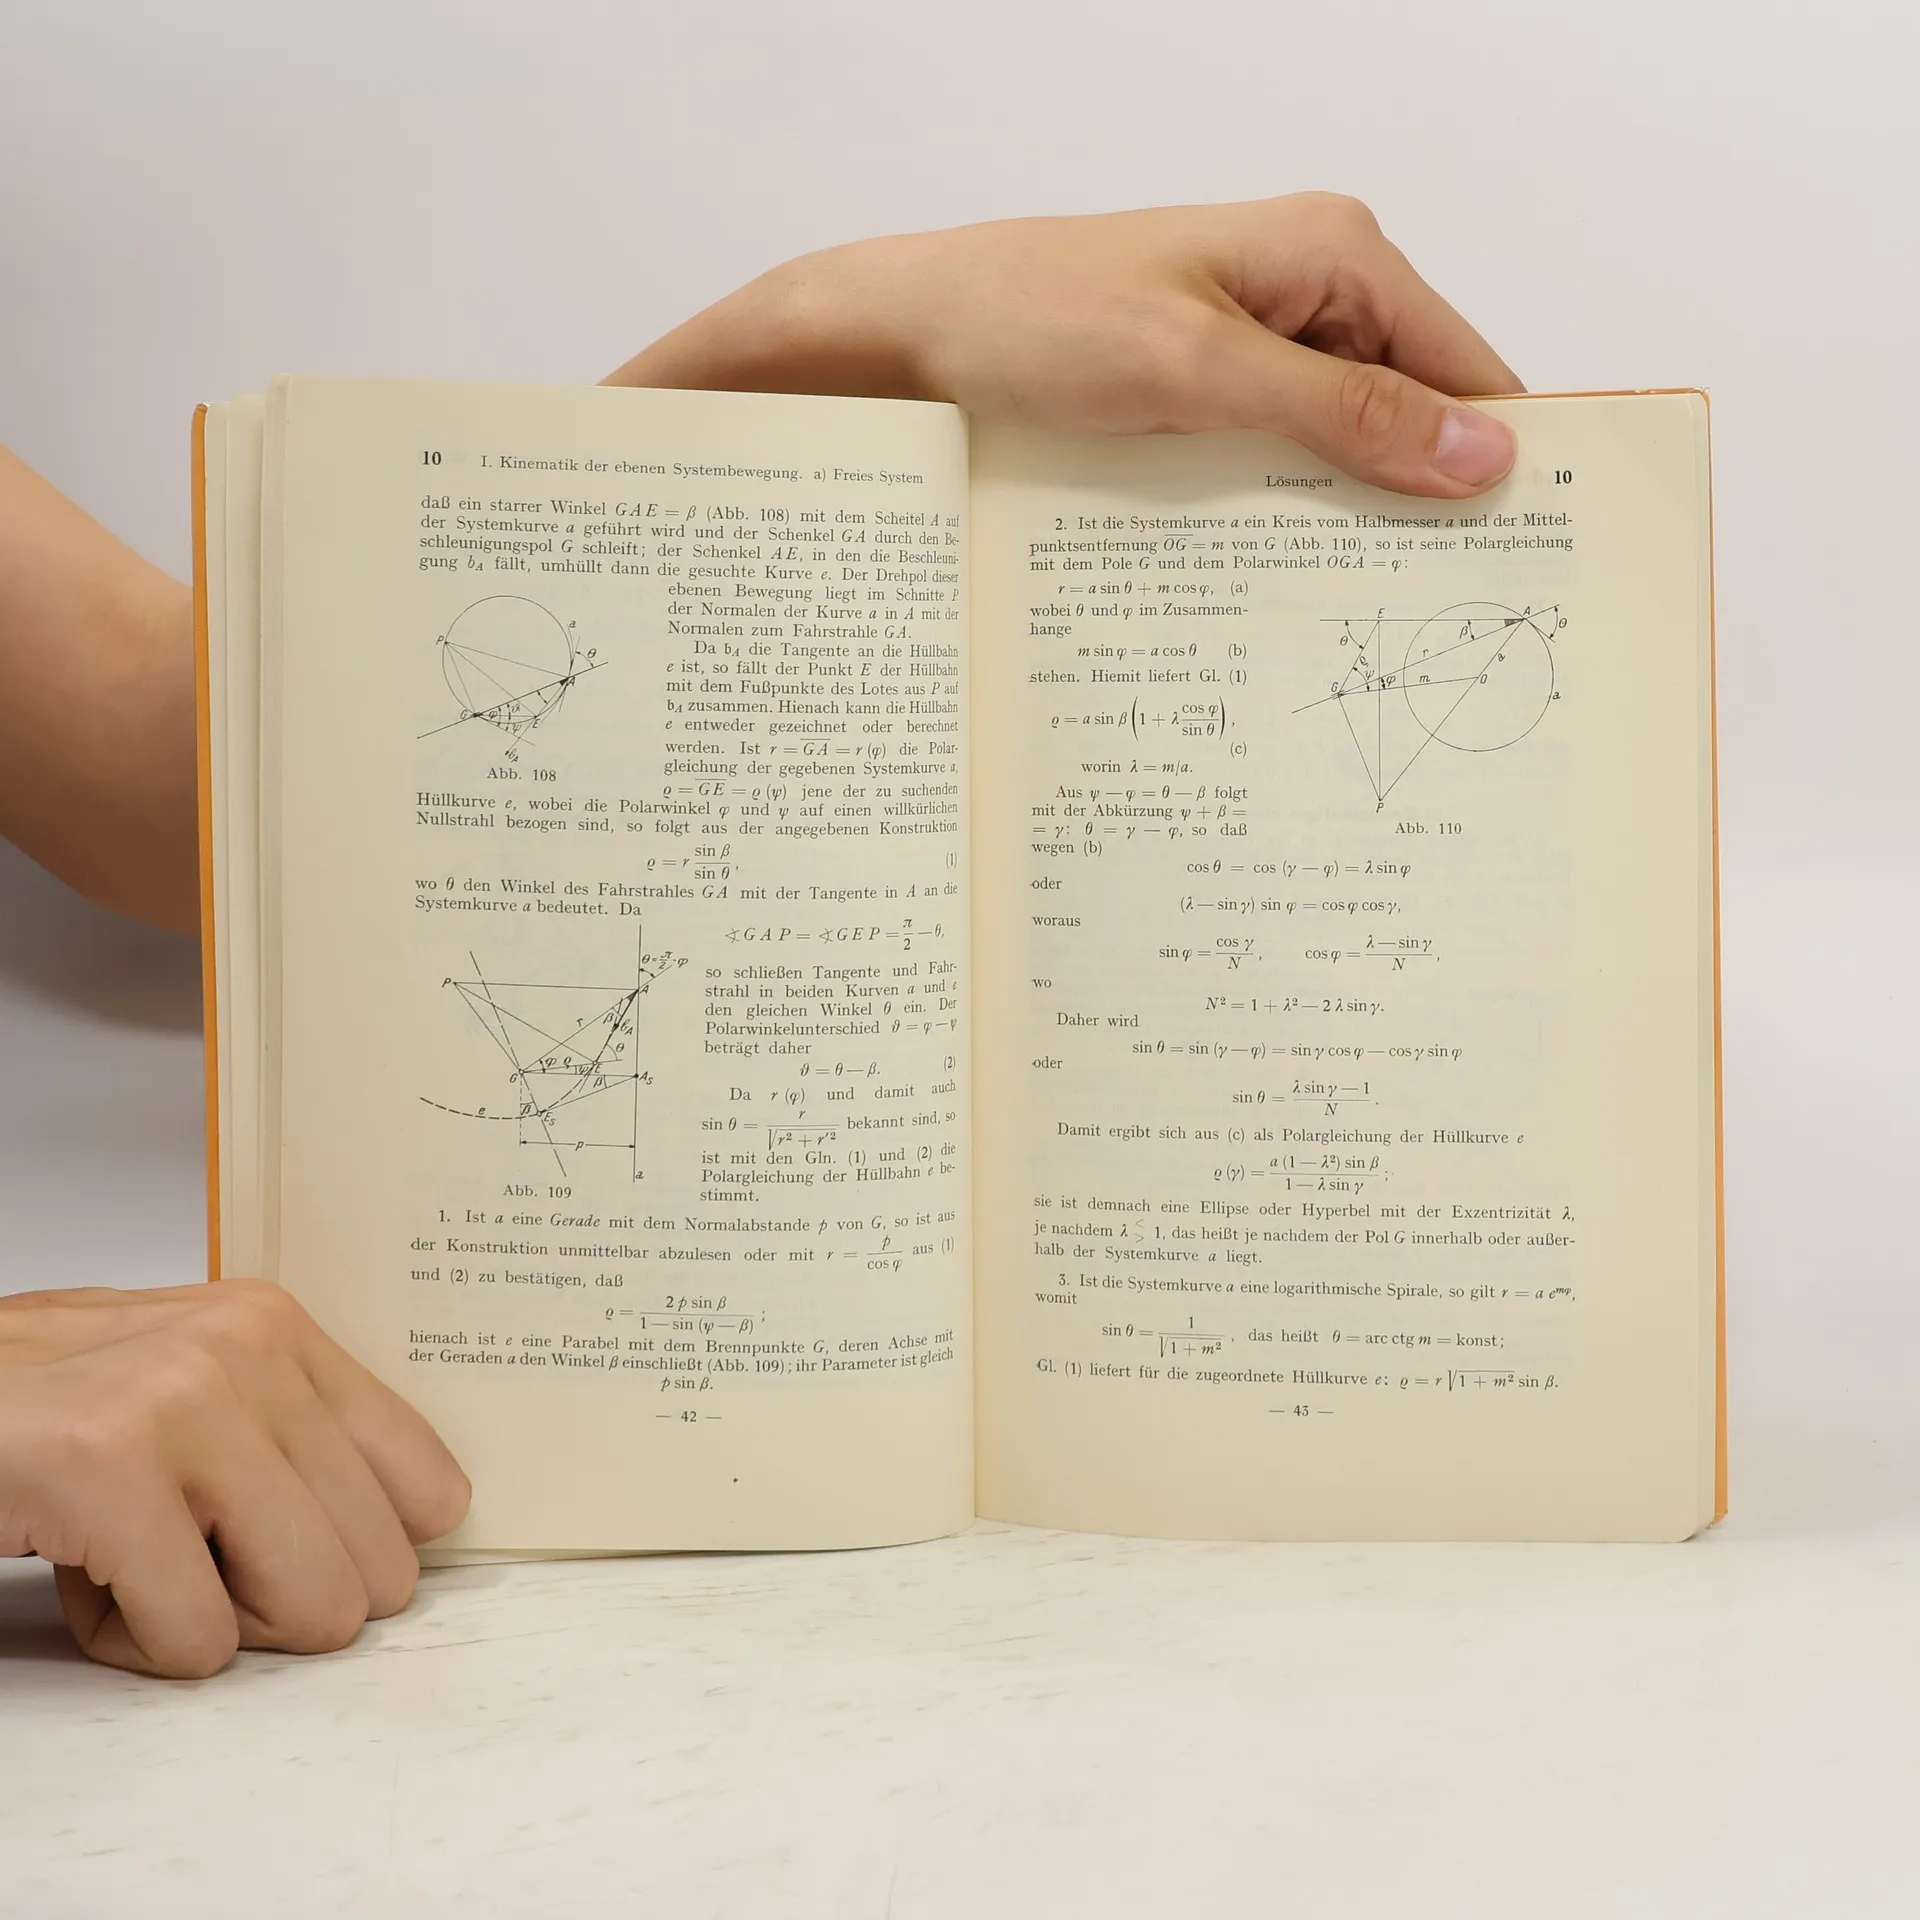 10 I. Kinematik der ebenen Systembewegung. a) Freies System
daß ein starrer Winkel GAE = β (Abb. 108) mit dem Scheitel A auf
der Systemkurve a geführt wird und der Schenkel GA durch den Be-
schleunigungspol G schleift; der Schenkel AE, in den die Beschleuni-
gung b_A fällt, umhüllt dann die gesuchte Kurve e. Der Drehpol dieser
ebenen Bewegung liegt im Schnitte P
der Normalen der Kurve a in A mit der
Normalen zum Fahrstrahle GA.
Da b_A die Tangente an die Hüllbahn
e ist, so fällt der Punkt E der Hüllbahn
mit dem Fußpunkte des Lotes aus P auf
b_A zusammen. Hienach kann die Hüllbahn
e entweder gezeichnet oder berechnet
werden. Ist r = \overline{GA} = r (φ) die Polar-
gleichung der gegebenen Systemkurve a,
ϱ = \overline{GE} = ϱ (ψ) jene der zu suchenden
P
a
θ
A
G
φ
ϑ
ψ
E
b_A
Abb. 108
Hüllkurve e, wobei die Polarwinkel φ und ψ auf einen willkürlichen
Nullstrahl bezogen sind, so folgt aus der angegebenen Konstruktion
ϱ = r \frac{sin β}{sin θ}, (1)
wo θ den Winkel des Fahrstrahles GA mit der Tangente in A an die
Systemkurve a bedeutet. Da
∢ G A P = ∢ G E P = \frac{π}{2} — θ,
so schließen Tangente und Fahr-
strahl in beiden Kurven a und e
den gleichen Winkel θ ein. Der
Polarwinkelunterschied ϑ = φ — ψ
beträgt daher
ϑ = θ — β. (2)
Da r (φ) und damit auch
sin θ = \frac{r}{\sqrt{r² + r'²}} bekannt sind, so
ist mit den Gln. (1) und (2) die
Polargleichung der Hüllbahn e be-
stimmt.
θ = \frac{π}{2} - φ
P
A
r
β
b_A
θ
φ
ϱ
ψ
E
G
β
A_S
e
β
E_S
p
a
Abb. 109
1. Ist a eine Gerade mit dem Normalabstande p von G, so ist aus
der Konstruktion unmittelbar abzulesen oder mit r = \frac{p}{cos φ} aus (1)
und (2) zu bestätigen, daß
ϱ = \frac{2 p sin β}{1 — sin (ψ — β)};
hienach ist e eine Parabel mit dem Brennpunkte G, deren Achse mit
der Geraden a den Winkel β einschließt (Abb. 109); ihr Parameter ist gleich
p sin β.
— 42 —
Lösungen 10
2. Ist die Systemkurve a ein Kreis vom Halbmesser a und der Mittel-
punktsentfernung \overline{OG} = m von G (Abb. 110), so ist seine Polargleichung
mit dem Pole G und dem Polarwinkel OGA = φ:
r = a sin θ + m cos φ, (a)
wobei θ und φ im Zusammen-
hange
m sin φ = a cos θ (b)
stehen. Hiemit liefert Gl. (1)
ϱ = a sin β (1 + λ \frac{cos φ}{sin θ}),
(c)
worin λ = m/a.
Aus ψ — φ = θ — β folgt
mit der Abkürzung ψ + β =
= γ: θ = γ — φ, so daß
wegen (b)
E
A
θ
β
θ
r
a
ϱ
ψ
φ
m
O
G
a
P
Abb. 110
cos θ = cos (γ — φ) = λ sin φ
oder
(λ — sin γ) sin φ = cos φ cos γ,
woraus
sin φ = \frac{cos γ}{N}, cos φ = \frac{λ — sin γ}{N},
wo
N² = 1 + λ² — 2 λ sin γ.
Daher wird
sin θ = sin (γ — φ) = sin γ cos φ — cos γ sin φ
oder
sin θ = \frac{λ sin γ — 1}{N}.
Damit ergibt sich aus (c) als Polargleichung der Hüllkurve e
ϱ (γ) = \frac{a (1 — λ²) sin β}{1 — λ sin γ};
sie ist demnach eine Ellipse oder Hyperbel mit der Exzentrizität λ,
je nachdem λ ≶ 1, das heißt je nachdem der Pol G innerhalb oder außer-
halb der Systemkurve a liegt.
3. Ist die Systemkurve a eine logarithmische Spirale, so gilt r = a e^{mφ},
womit
sin θ = \frac{1}{\sqrt{1 + m²}}, das heißt θ = arc ctg m = konst;
Gl. (1) liefert für die zugeordnete Hüllkurve e: ϱ = r \sqrt{1 + m²} sin β.
— 43 —